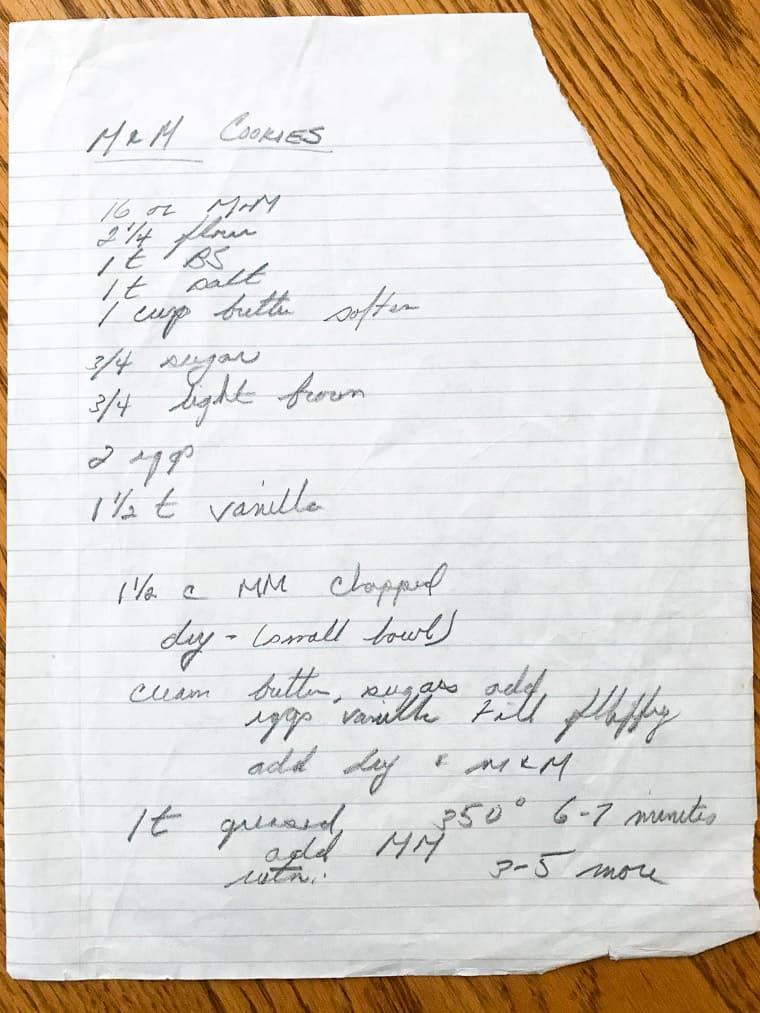 M & M COOKIES
16 oz M&M
2 1/4 flour
1 t BS
1 t salt
1 cup butter soften
3/4 sugar
3/4 light brown
2 eggs
1 1/2 t vanilla
1 1/2 c MM chopped
dry - (small bowl)
cream butter, sugars add
eggs vanilla till fluffy
add dry & M & M
1t greased 350° 6-7 minutes
add MM
3-5 more